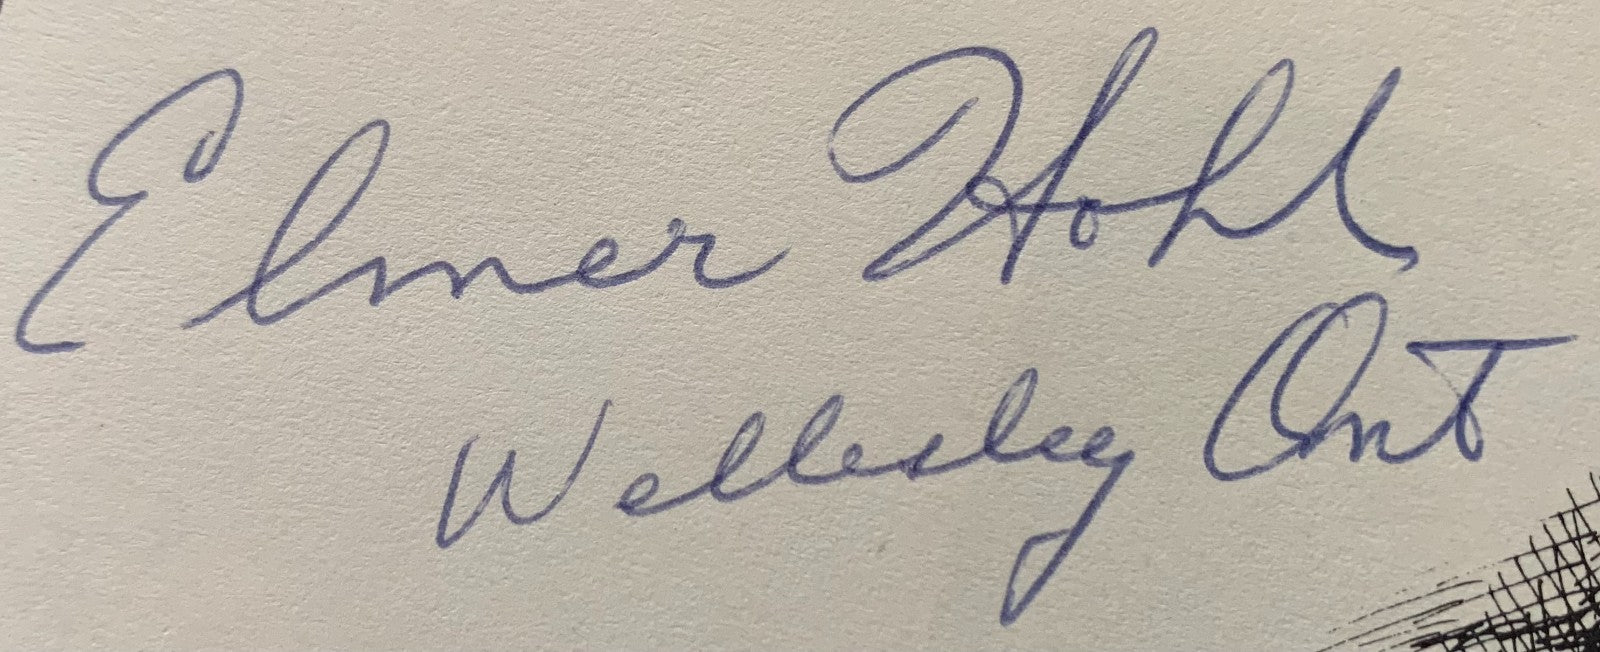 Elmer Hohl
Wellesley Ont